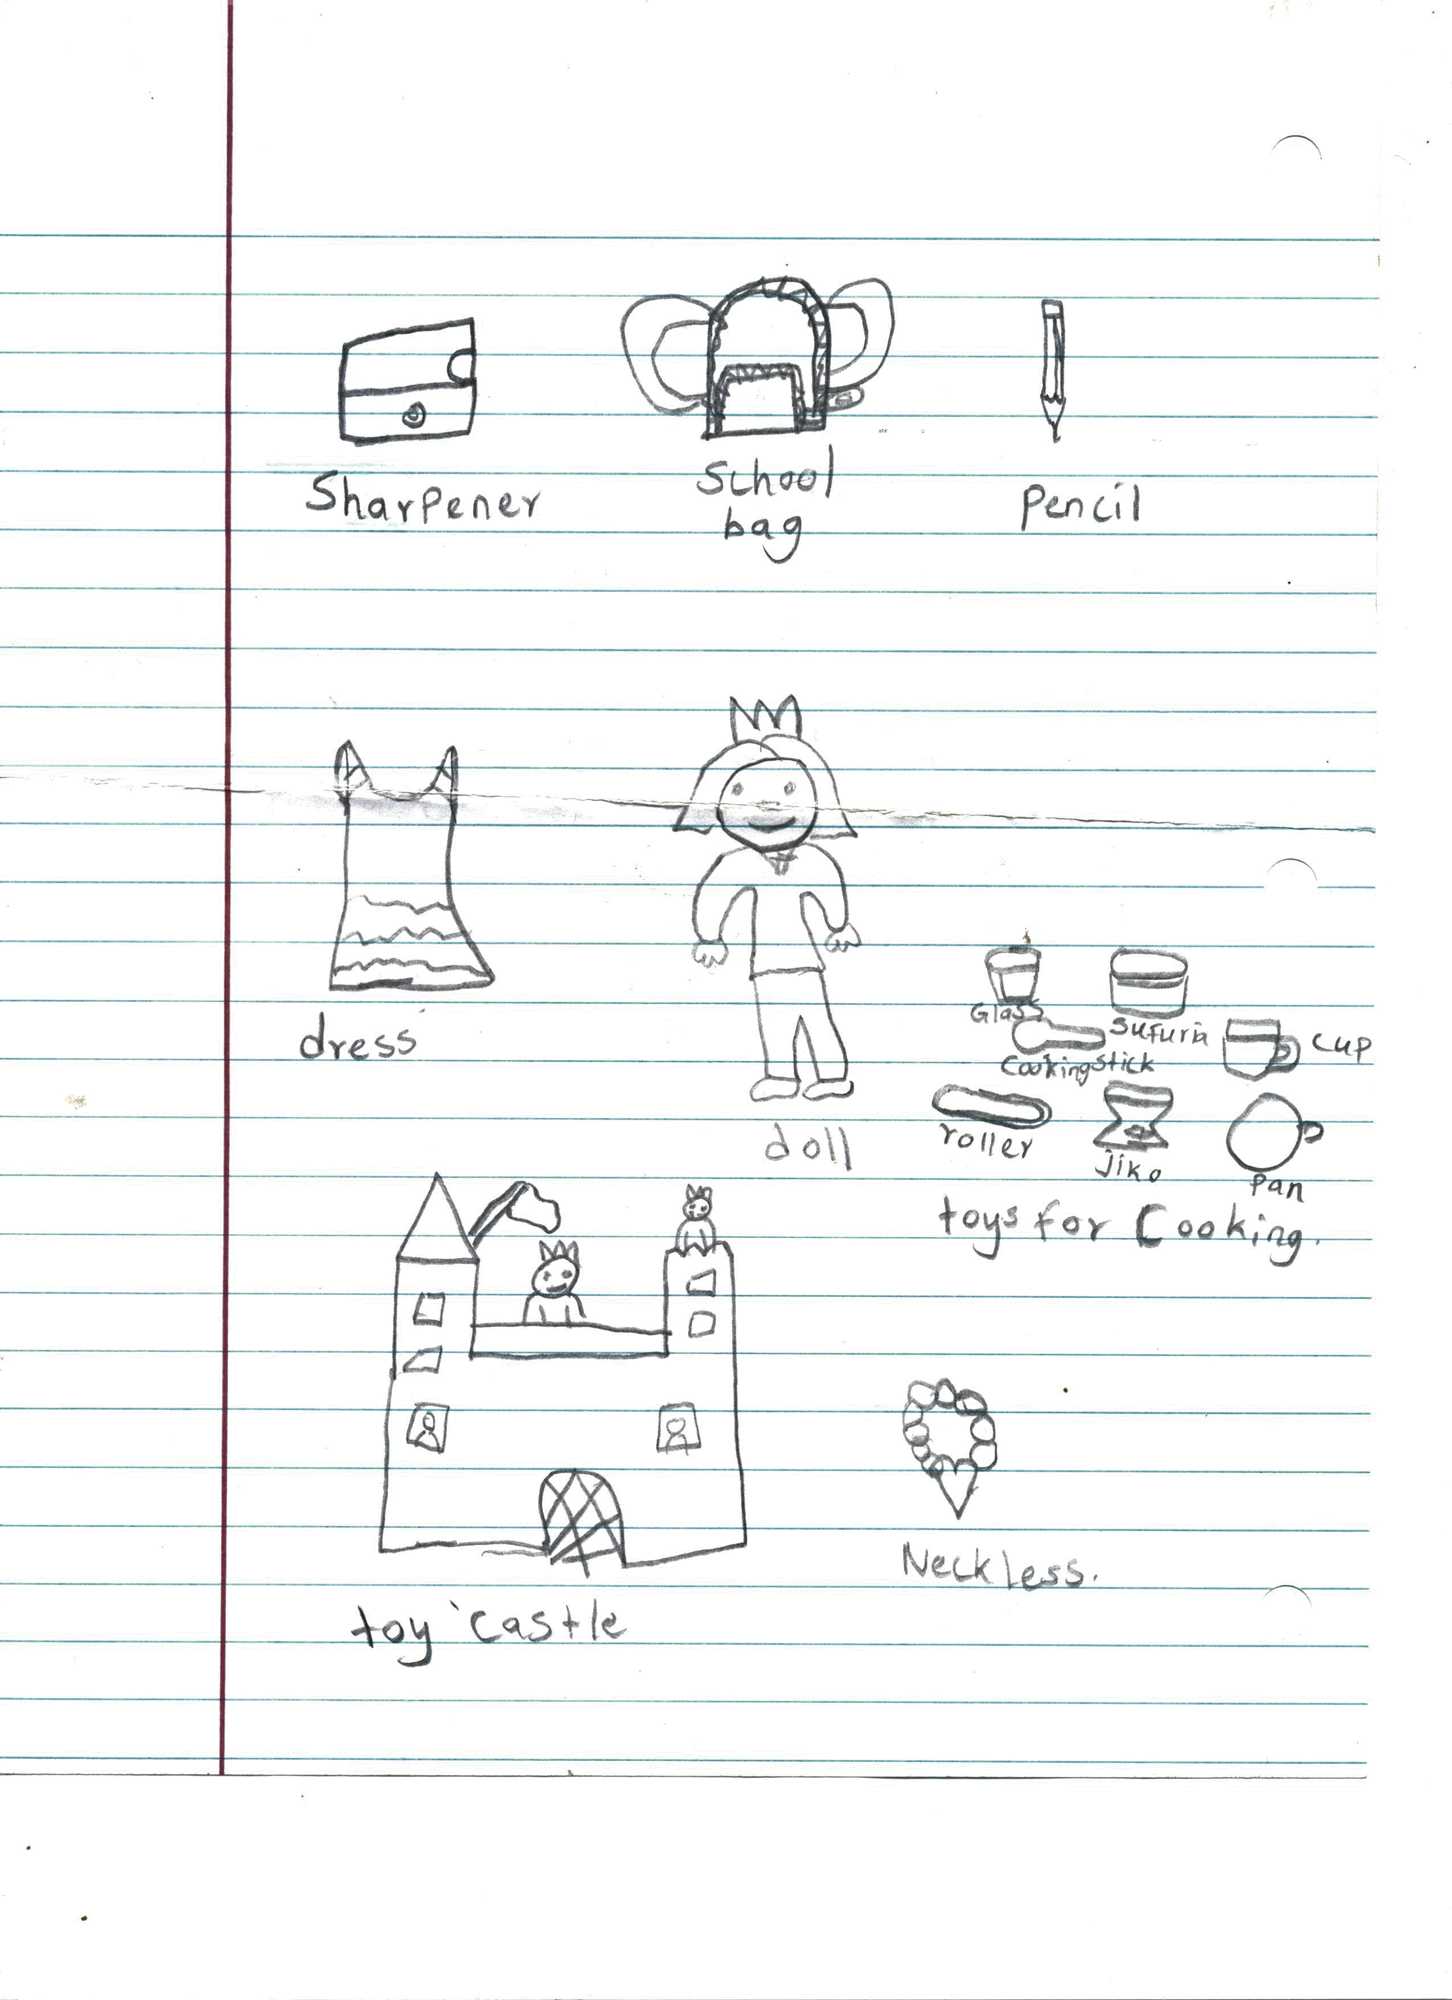 Sharpener
School
bag
Pencil
dress
doll
Glass
Sufuria
Cookingstick
cup
roller
jiko
pan
toys for Cooking.
toy castle
Neckless.